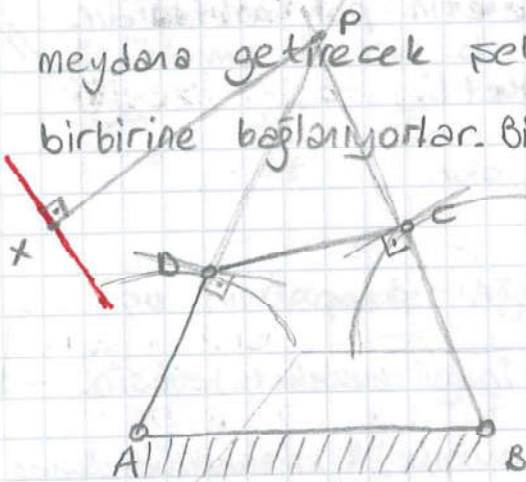 P
meydana getirecek şek
birbirine bağlanıyorlar. Bi
X
D
C
A
B